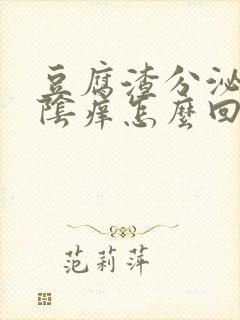 豆腐渣分泌
陰癢怎麼回
范莉萍